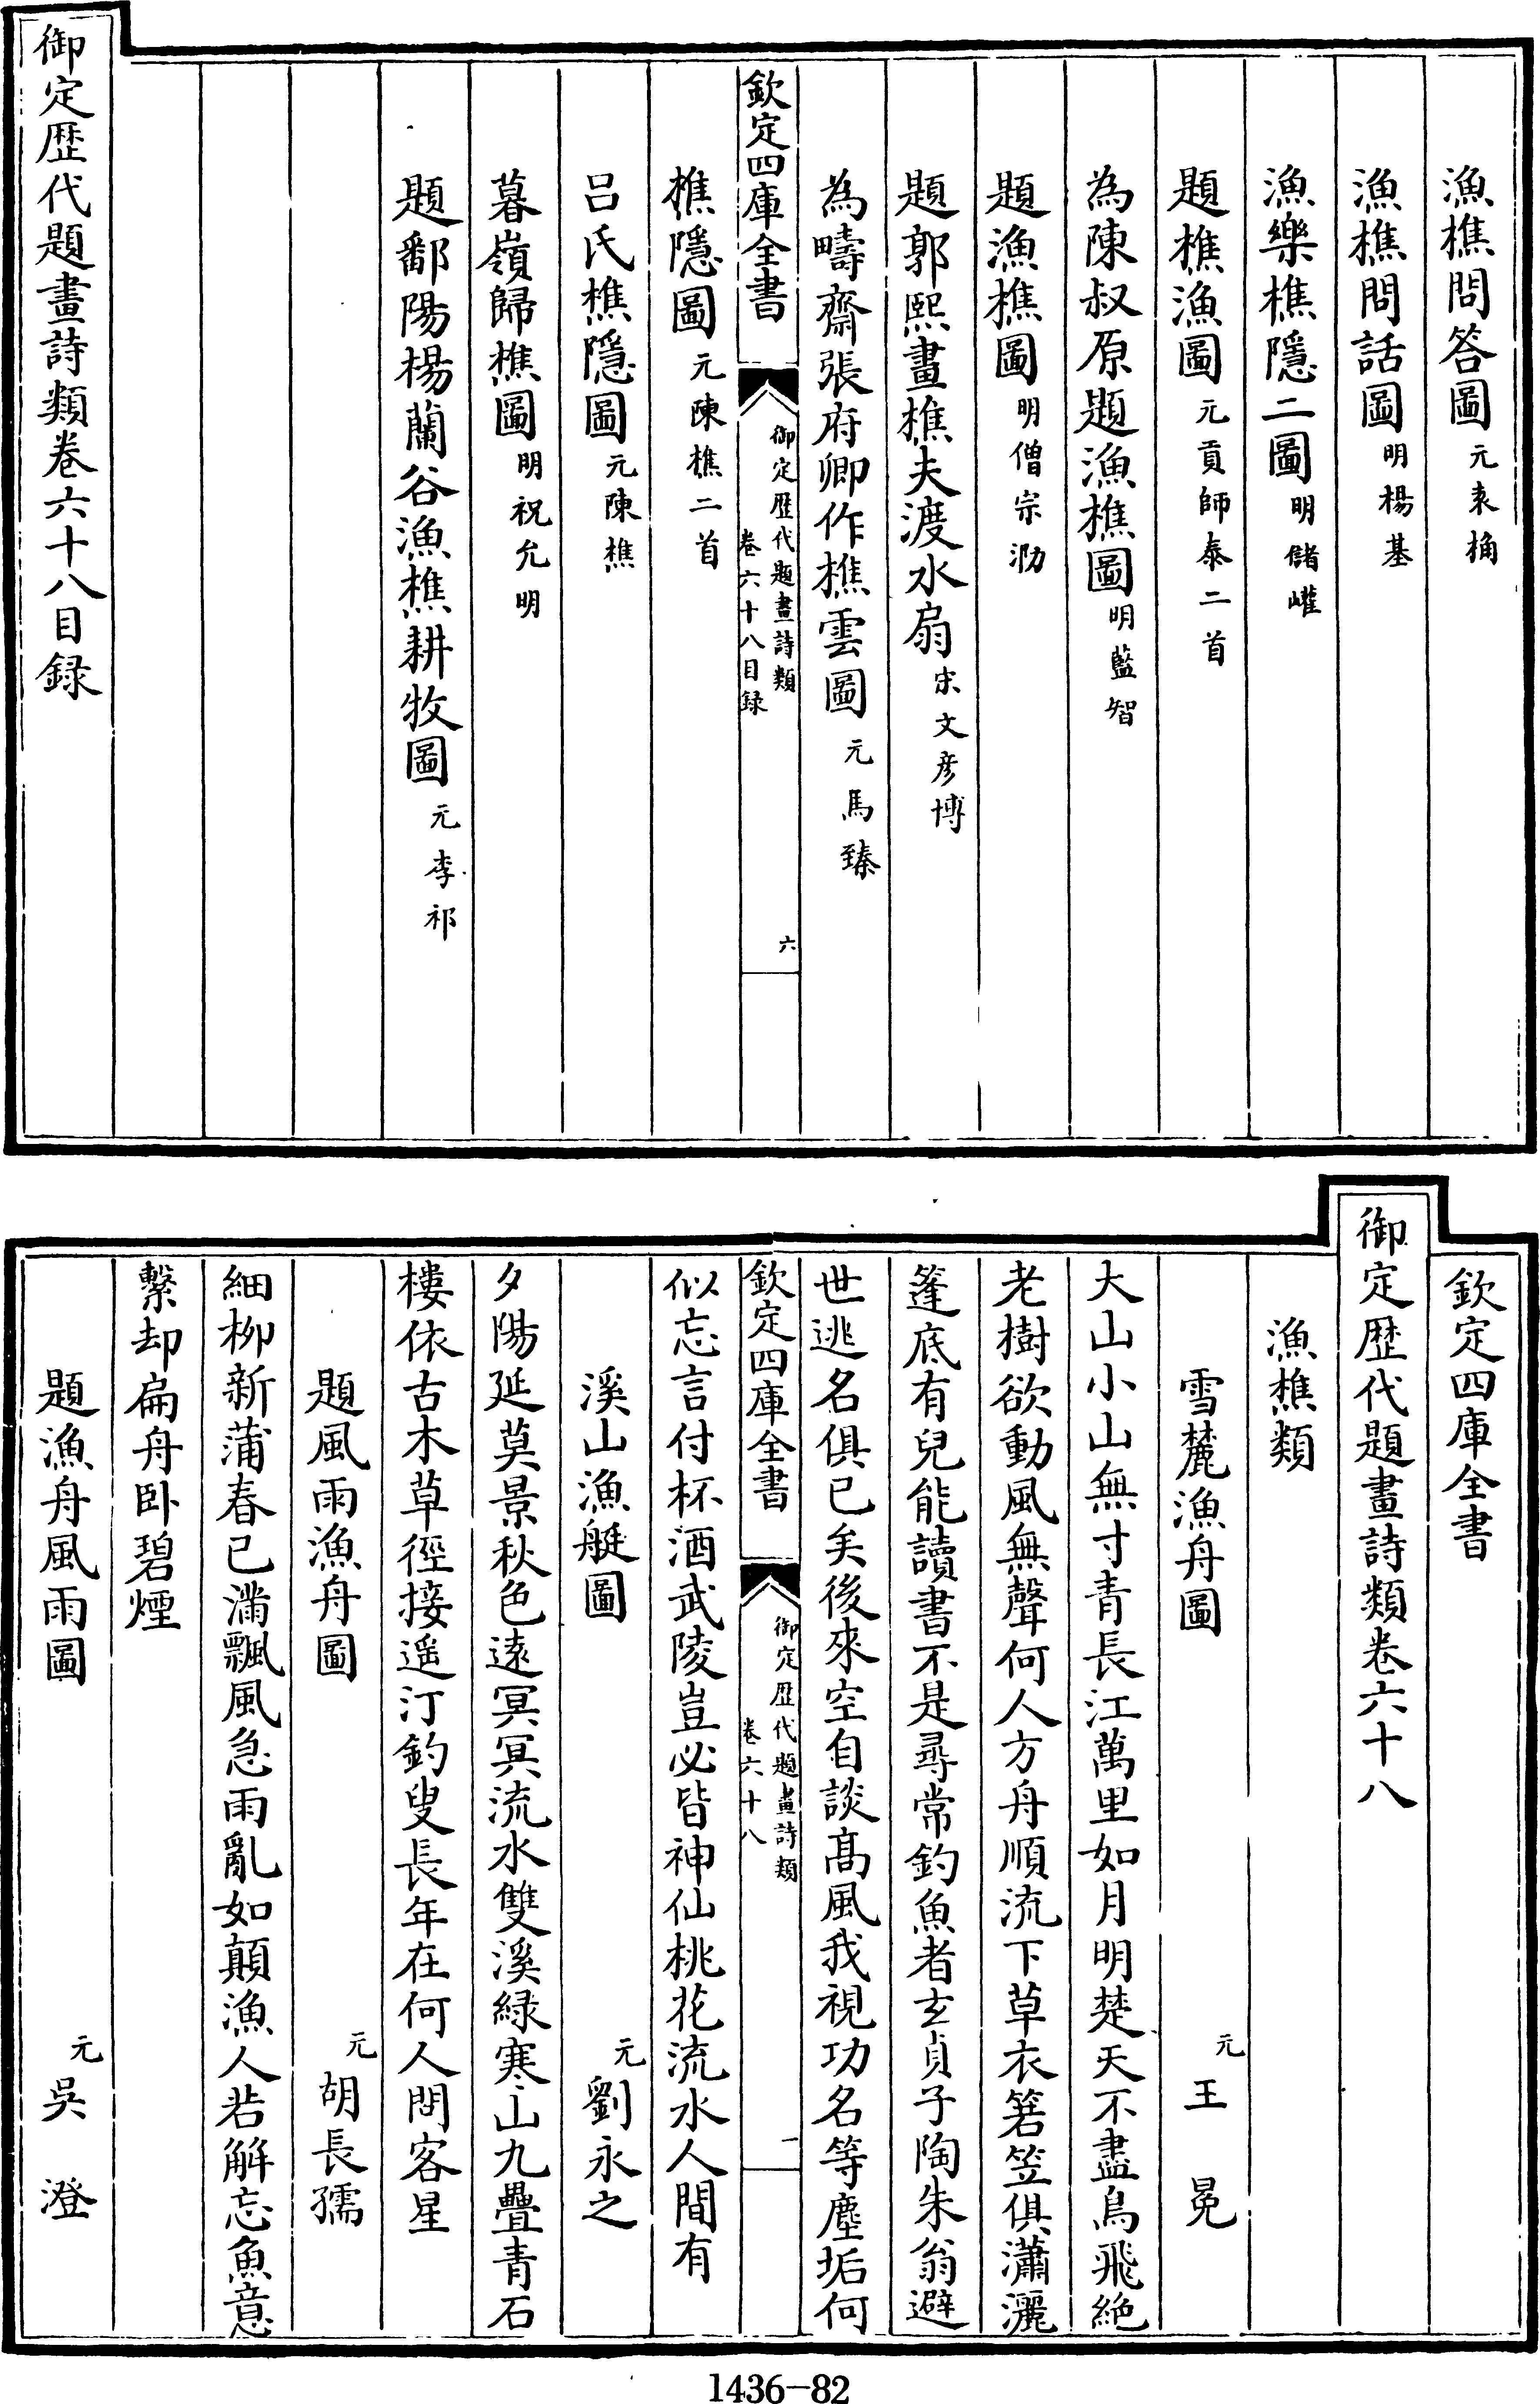 漁樵問答圖元袁桷
漁樵問話圖明楊基
漁樂樵隱二圖明儲巏
題樵漁圖元貢師泰二首
為陳叔原題漁樵圖明藍智
題漁樵圖明僧宗泐
題郭熙畫樵夫渡水扇宋文彥博
為疇齋張府卿作樵雲圖元馬臻
欽定四庫全書
御定歴代題畫詩類
卷六十八目録
六
樵隱圖元陳樵二首
吕氏樵隱圖元陳樵
暮嶺歸樵圖明祝允明
題鄱陽楊蘭谷漁樵耕牧圖元李祁
御定歴代題畫詩類卷六十八目録
欽定四庫全書
御定歴代題畫詩類卷六十八
漁樵類
雪麓漁舟圖 元王冕
大山小山無寸青長江萬里如月明楚天不盡鳥飛絶
老樹欲動風無聲何人方舟順流下草衣箬笠俱瀟灑
篷底有兒能讀書不是尋常釣魚者玄貞子陶朱翁避
世逃名俱已矣後來空自談髙風我視功名等塵垢何
欽定四庫全書
御定歴代題畫詩類
卷六十八
一
似忘言付杯酒武陵豈必皆神仙桃花流水人間有
溪山漁艇圖 元劉永之
夕陽延莫景秋色遠冥冥流水雙溪緑寒山九疊青石
樓依古木草徑接遥汀釣叟長年在何人問客星
題風雨漁舟圖 元胡長孺
細柳新蒲春已滿飄風急雨亂如顛漁人若解忘魚意
繫却扁舟卧碧煙
題漁舟風雨圖 元吳澄
1436-82